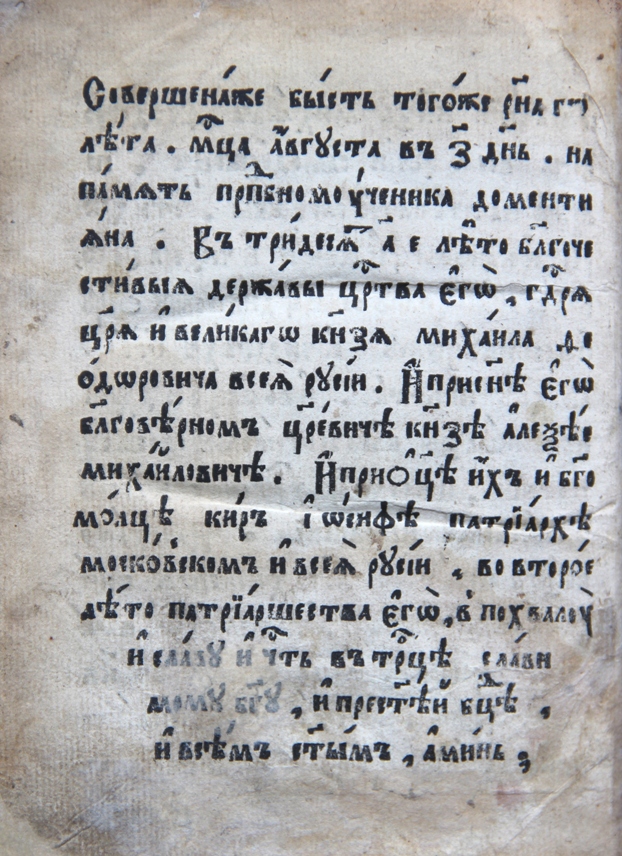 Соверше́на́же бы́сть того́же рн҃а го
лѣ́та . мц҃а а҆́вгꙋста въ з҃ дн҃ь . на
па́мѧть прпⷣбномоу́ченика доменти
ѧ́на . Въ три́десѧⷮ а҃ е лѣ́то бл҃гоче
сти́выѧ держа́вы црⷭ҇тва є҆гѡ̀ , гдⷭ҇рѧ
цр҃ѧ и҆ вели́кагѡ кн҃зѧ миха́ила ѳе
ѻ́дѡровича всеѧ̀ рꙋсі́и . И҆ при сн҃ѣ є҆гѡ̀
бл҃говѣ́рномъ цр҃е́вичѣ кн҃зѣ а҆леѯѣ́е
миха́иловичѣ . И҆ при ѻц҃ѣ и҆́хъ и҆ бг҃о
мо́лцѣ ки́ръ і҆ѡ́сифѣ патрїа́рхѣ
моско́вскомъ и҆ всеѧ̀ рꙋсі́и , во второ́е
лѣ́то патрїа́ршества є҆гѡ̀, в̾ похвалоу̀
и҆ сла́вꙋ и҆ чⷭ҇ть въ трⷪ҇цѣ сла́ви
момꙋ бг҃ꙋ , и҆ прест҃ѣ́й бцⷣѣ ,
и҆ всѣ́мъ ст҃ы́мъ , а҆ми́нь ,